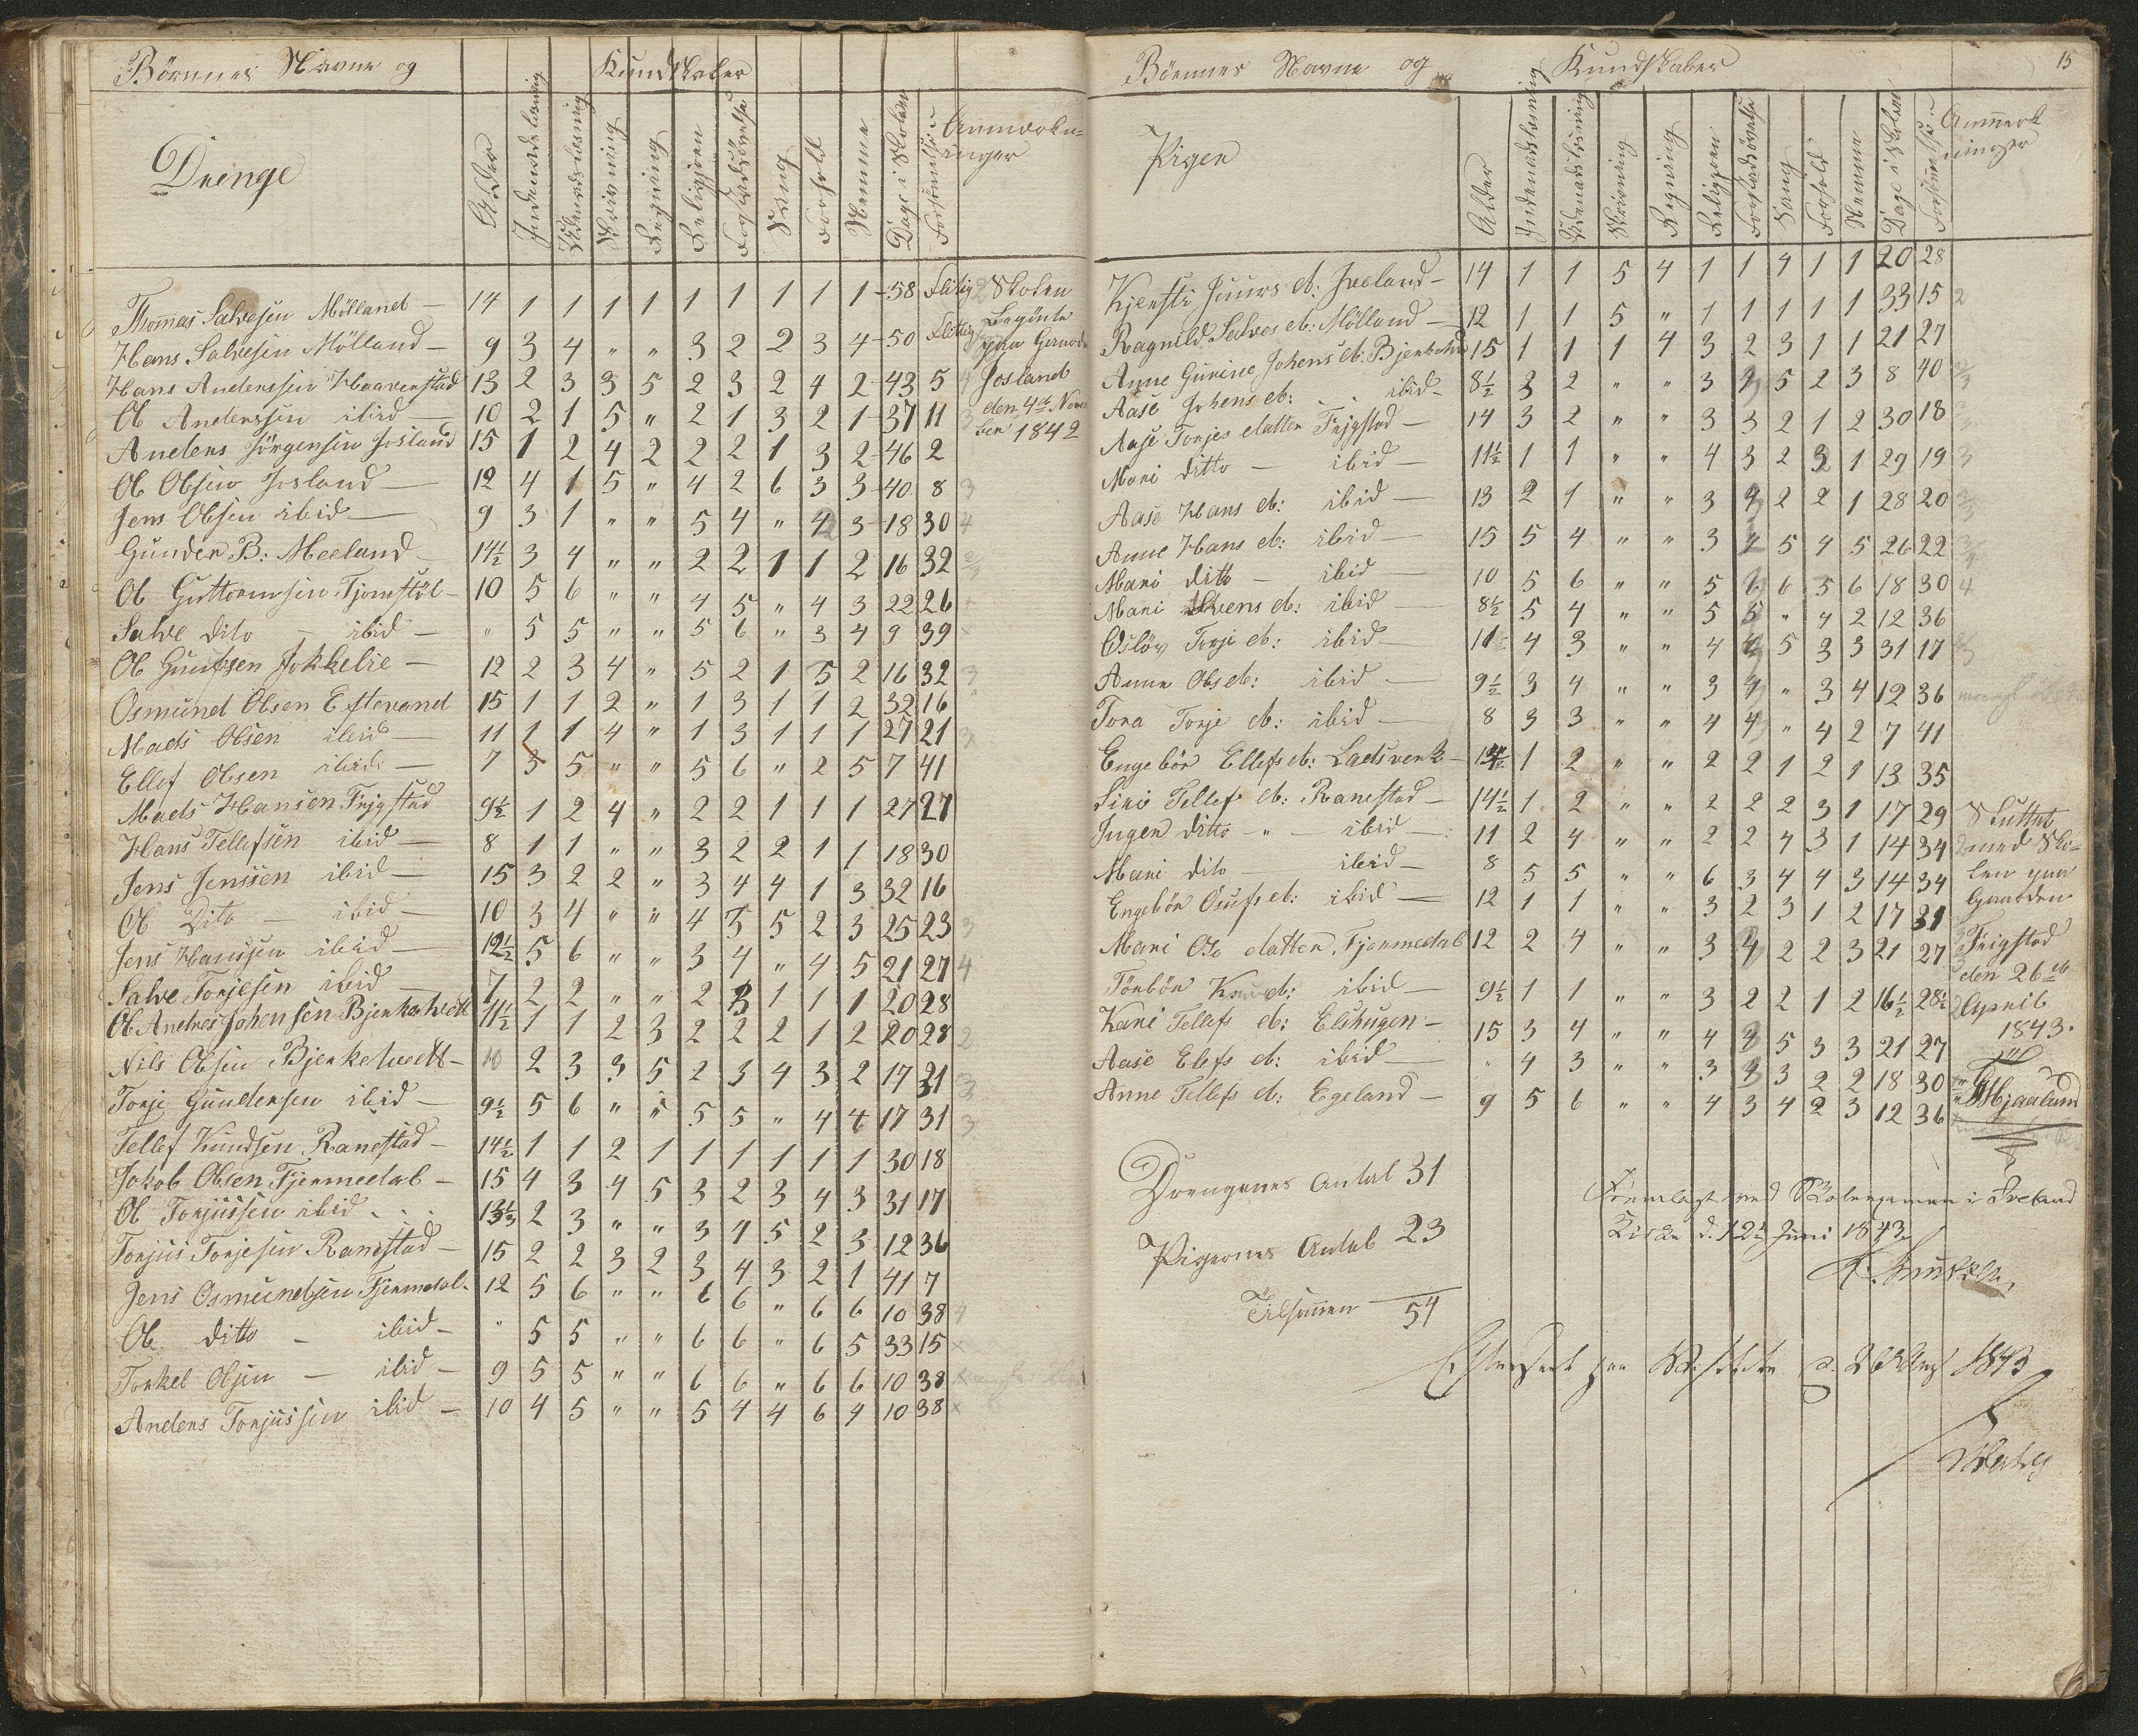 Börnenes Navne og Kundskaber
Drenge
Alder Indenadslæsning Udenadslæsning Skrivning Regning Religjonen Forstadsövelse Sang Forhold Nemme Dage i Skolen Forsömmelser Anmærkninger
Thomas Salvesen Mölland — 14 1 1 1 1 1 1 1 1 1 58 flitig 2
Hans Salvesen Mölland — 9 3 4 " " 3 2 2 3 4 50 flittig
Hans Anderssen Haaverstad 13 2 3 3 5 2 3 2 4 2 43 5 4
Ol Anderssen ibid — 10 2 1 5 " 2 1 3 2 1 37 11 3
Anders Jörgensen Josland 15 1 2 4 2 2 2 1 3 2 46 2
Ol Olsen Josland — 12 4 1 5 " 4 2 6 3 3 40 8 3
Jens Olsen ibid — 9 3 1 " " 5 4 " 4 3 18 30 4
Gunder B: Meeland — 14½ 3 4 " " 2 2 1 1 2 16 32
Ol Guttormsen Tjomstöl — 10 5 6 " " 4 5 " 4 3 22 26
Salve dito — ibid — " 5 5 " " 5 6 " 3 4 9 39 x
Ol Gunfsen Jokkelie — 12 2 3 4 " 5 2 1 5 2 16 32 3
Osmund Olsen Eftevand 15 1 1 2 " 1 3 1 1 2 32 16
Mads Olsen ibid — 11 1 1 4 " 1 3 1 1 1 27 21 3
Ellef Olsen ibid — 7 3 5 " " 5 6 " 2 5 7 41
Mads Hansen Frigstad 9½ 1 2 4 " 2 2 1 1 1 27 21
Hans Tellefsen ibid — 8 1 1 " " 3 2 2 1 1 18 30
Jens Jenssen ibid — 15 3 2 2 " 3 4 4 1 3 32 16
Ol Dito — ibid — 10 3 4 " " 4 5 5 2 3 25 23 3
Jens Hanssen ibid — 12½ 5 6 " " 3 4 " 4 5 21 27 4
Salve Torjesen ibid — 7 2 2 " " 2 3 1 1 1 20 28
Ol Andres Johensen Bjerkehvedt 11½ 1 1 2 3 2 2 2 1 2 20 28 2
Nils Olsen Bjerkehvedt — 10 2 3 3 5 2 3 4 3 2 17 31 3
Torje Gundersen ibid — 9½ 5 6 " " 5 5 " 4 4 17 31 3
Tellef Knudsen Ranestad — 14½ 1 1 2 1 1 1 1 1 1 30 18
Jokob Olsen Fjermedal — 15 4 3 4 5 3 2 3 4 3 31 17
Ol Torjussen ibid . . . 13½ 2 3 " " 3 4 5 2 3 12 36
Torjus Torjesen Ranestad — 15 2 2 3 2 3 4 3 2 1 41 7
Jens Osmundsen Fjermedal — 12 5 6 " " 6 6 " 6 6 10 38 4
Ol ditto — ibid — " 5 5 " " 6 6 " 6 5 33 15 x
Torkel Olsen — ibid — 9 5 5 " " 6 6 " 6 6 10 38 x
Anders Torjussen ibid — 10 4 5 " " 5 4 4 6 4 10 38 x
Skolen
Begönte
paa Gaarde
Josland
den 4de Novem
ber 1842
15
Börnenes Navne og Kundskaber
Piger
Alder Indenadslæsning Udenadslæsning Skrivning Regning Religjonen Forstadsövelse Sang Forhold Nemme Dage i Skolen Forsömmelser Anmerkninger
Kjersti Juurs d: Iveland — 14 1 1 5 4 1 1 4 1 1 20 28
Ragnild Salves d: Mölland — 12 1 1 5 " 1 1 1 1 1 33 15 2
Anne Gurine Johens d: Bjerkehvedt 15 1 1 1 4 3 2 3 1 1 21 27
Aase Johens d: — ibid — 8½ 3 2 " " 3 3 5 2 3 8 40
Aase Torjes datter Frigstad — 14 3 2 " " 3 3 2 1 2 30 18
Mari ditto — ibid — 11½ 1 1 " " 4 3 2 3 1 29 19 3
Aase Hans d: ibid — 13 2 1 " " 3 4 2 2 1 28 20
Anne Hans d: ibid — 15 5 4 " " 3 4 5 4 5 26 22
Mari ditto — ibid — 10 5 6 " " 5 6 6 5 6 18 30 4
Mari Svens d: ibid — 8½ 5 4 " " 5 5 " 4 2 12 36
Oslöv Torje d: ibid — 11½ 4 3 " " 4 4 5 3 3 31 17
Anna Ols d: ibid — 9½ 3 4 " " 3 4 " 3 4 12 36
Tora Torje d: ibid — 8 3 3 " " 4 4 " 4 2 7 41
Engebör Ellefs d: Ladsverk — 14 1 2 " " 2 2 1 2 1 13 35
Siri Tellef d: Ranestad — 14½ 1 2 " " 2 2 2 3 1 17 29
Inger ditto — " — ibid — 11 2 4 " " 2 2 4 3 1 14 34 2
Mari dito — ibid — 8 5 5 " " 6 3 4 4 3 14 34
Engebör Osufs d: ibid — 12 1 1 " " 3 2 3 1 2 17 31
Mari Ols datter Fjermedal 12 2 4 " " 3 4 2 2 3 21 27
Tönbör Knud d: ibid — 9½ 1 1 " " 3 2 2 1 2 16½ 28½ 2
Kari Tellefs d: Elshugen — 15 3 4 " " 4 4 5 3 3 21 27
Aase Elefs d: ibid — " 4 3 " " 3 4 3 2 2 18 30
Anne Tellefs d: Egeland — 9 5 6 " " 4 3 4 2 3 12 36
Sluttet
med Sko=
len paa
Gaarden
Frigstad
den 26de
April
1843.
Drengenes Antal 31
Pigernes Antal 23
Tilsammen 54
Fremlagt ved Skoleexamen i Iveland
Kirke d. 12te Juni 1843
Efterseet paa Visitats d. 26 Aug 1843